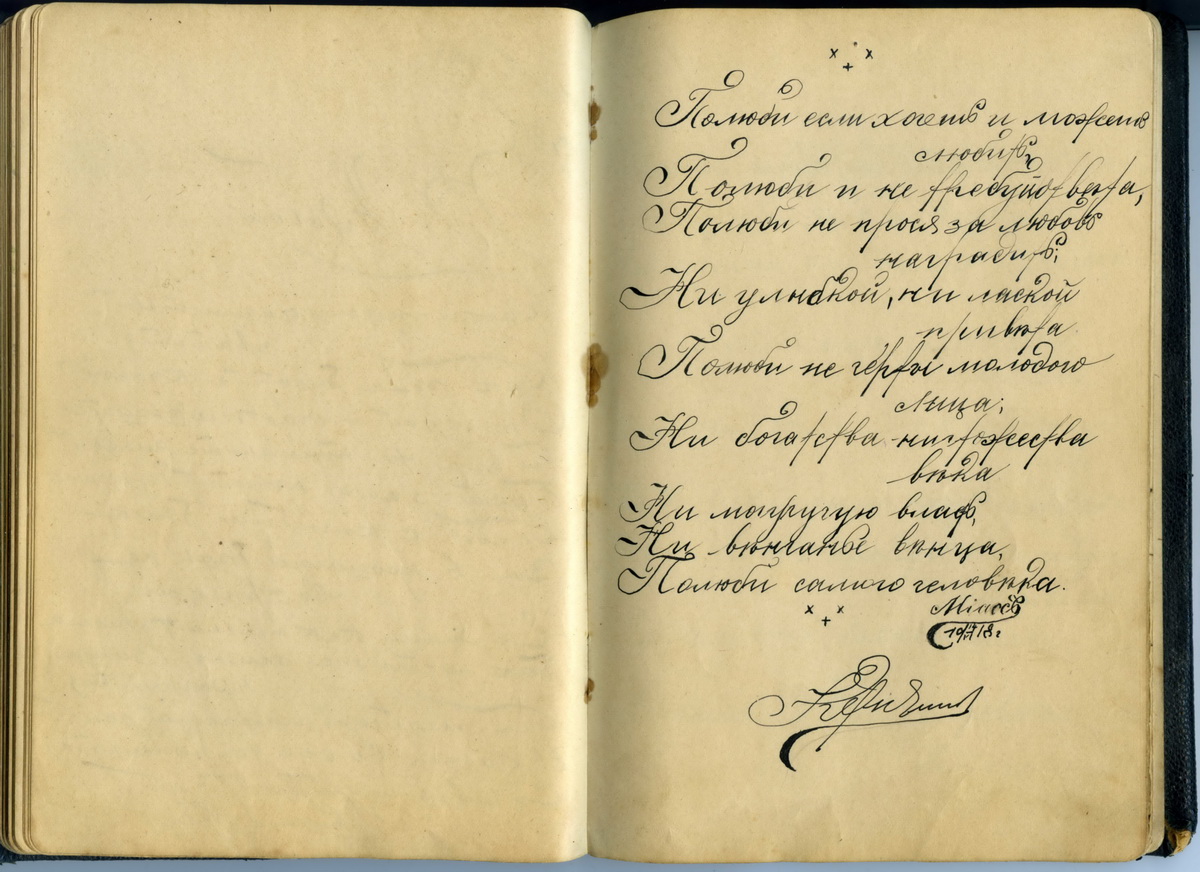 Полюби если хочешь и можешь
любить,
Полюби и не требуй ответа,
Полюби не прося за любовь
наградить;
Ни улыбкой, ни лаской
привѣта.
Полюби не черты молодого
лица;
Ни богатства ни торжества
вѣка
Ни могучую власть,
Ни вѣнчанье вѣнца,
Полюби самого человѣка.
Міассъ
18 г